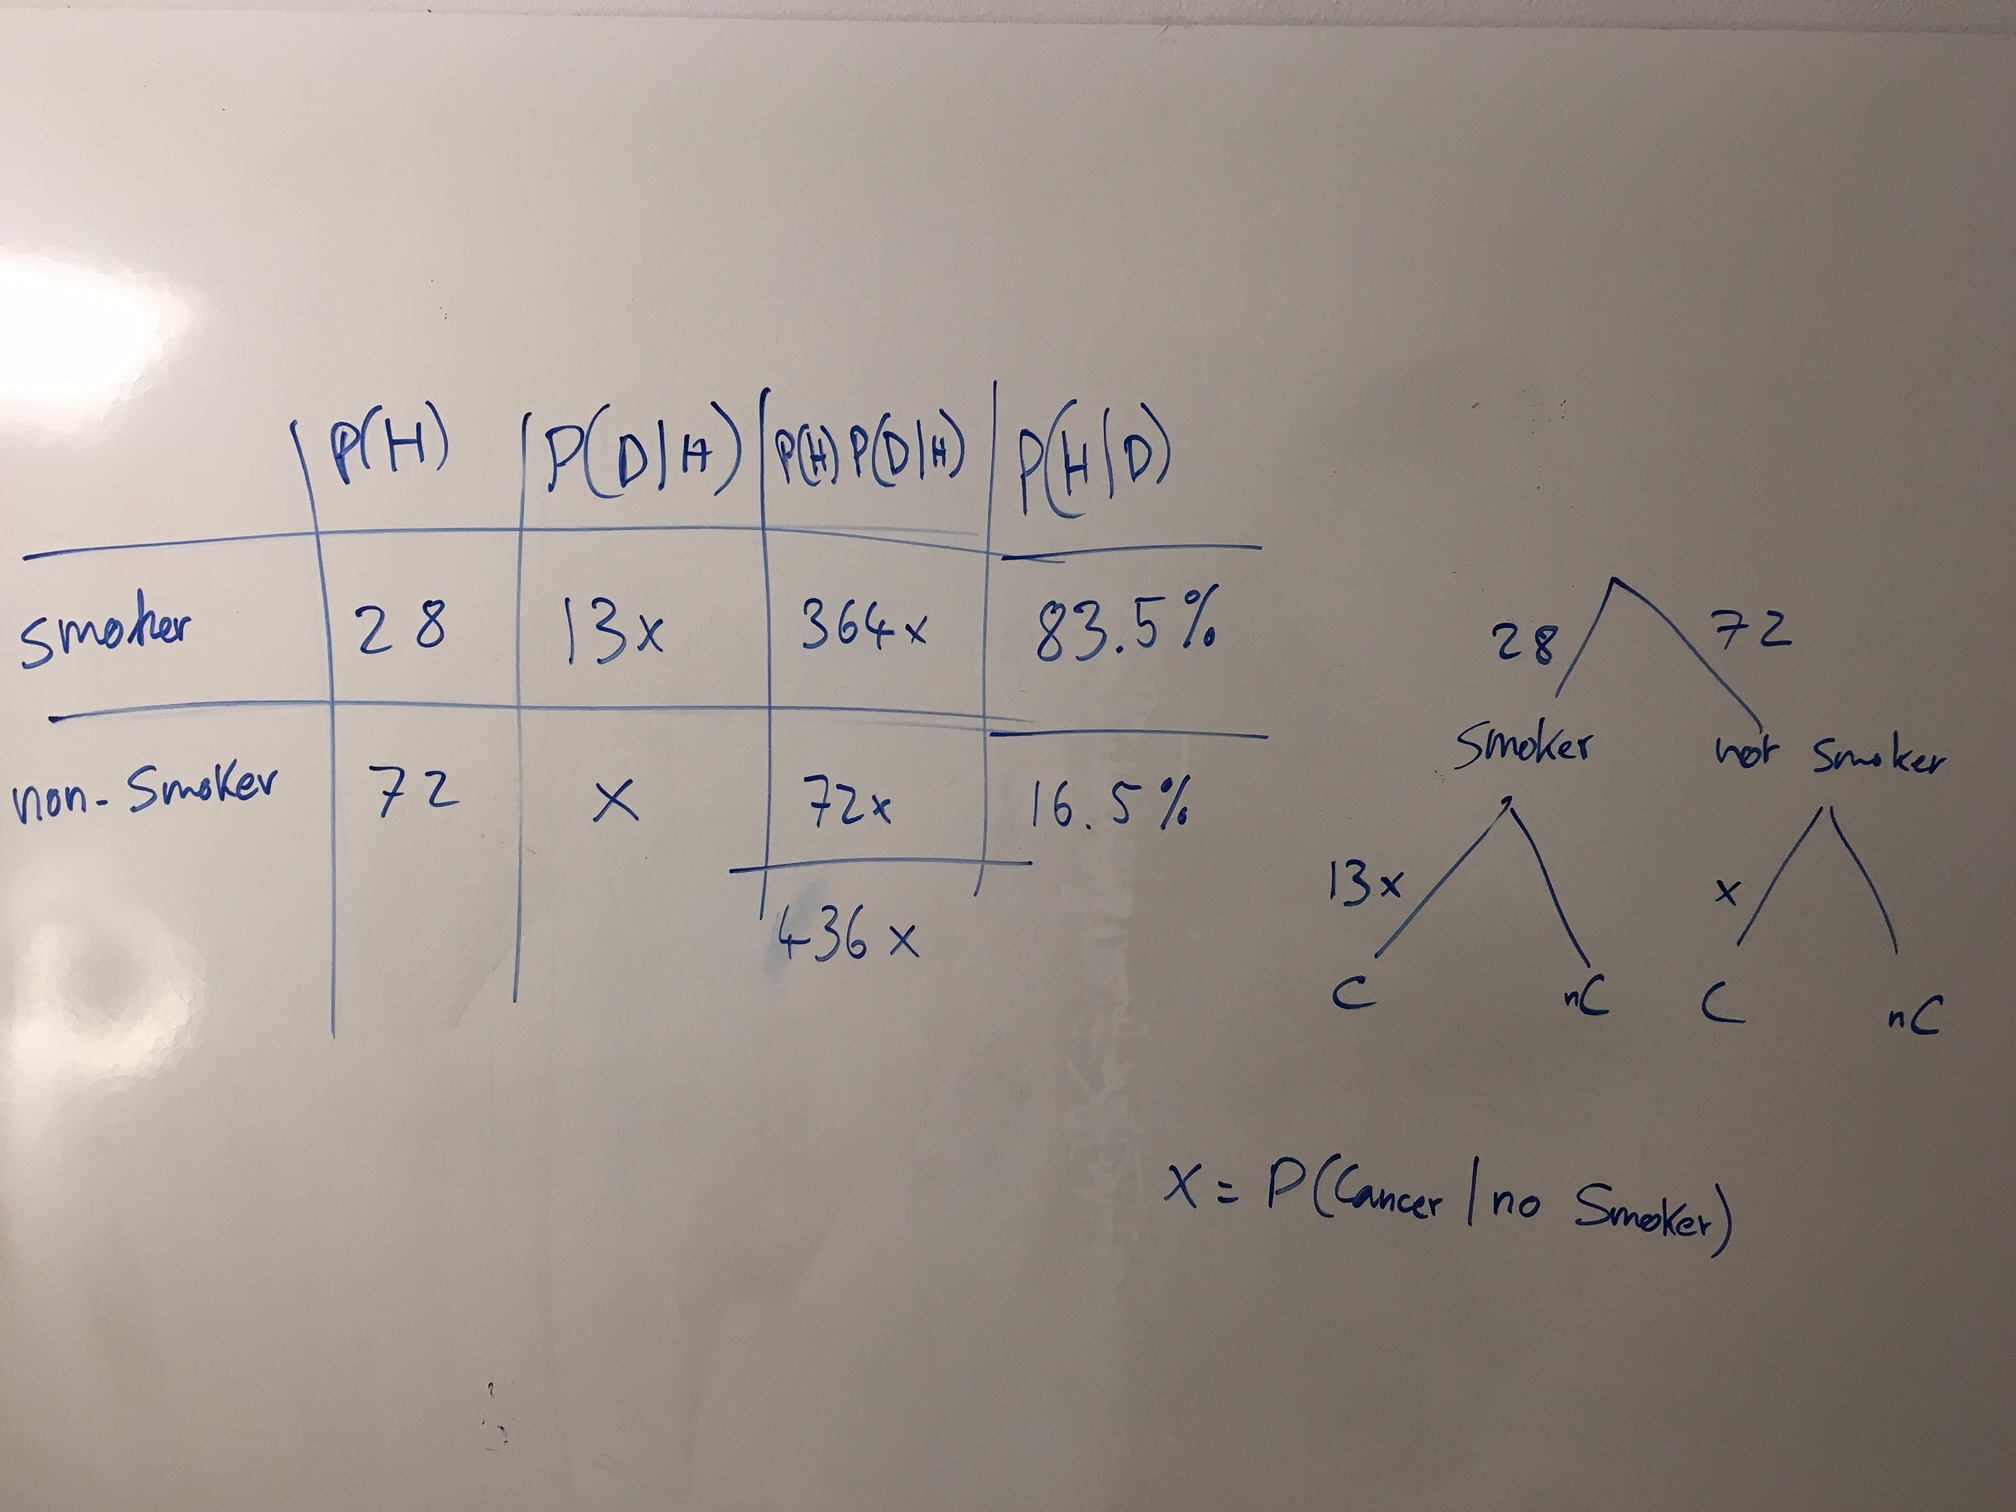 P(H) P(D|H) P(H) P(D|H) P(H|D)
smoker 28 13x 364x 83.5%
non-smoker 72 x 72x 16.5%
436x
28 72
smoker not smoker
13x x
C nC C nC
x = P(Cancer | no smoker)